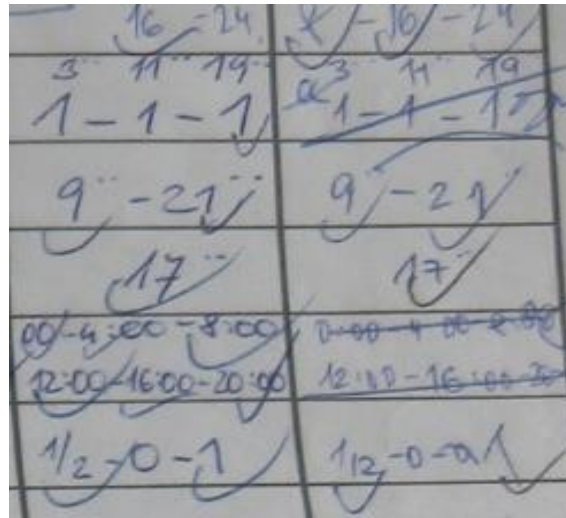 16 - 24
8 - 16 - 24
3 11 19
1 - 1 - 1
3 11 19
1 - 1 - 1
9 - 21
9 - 21
17
17
00-4:00-8:00
12:00-16:00-20:00
0:00-4:00-8:00
12:00-16:00-20
1/2-0-1
1/2-0-1